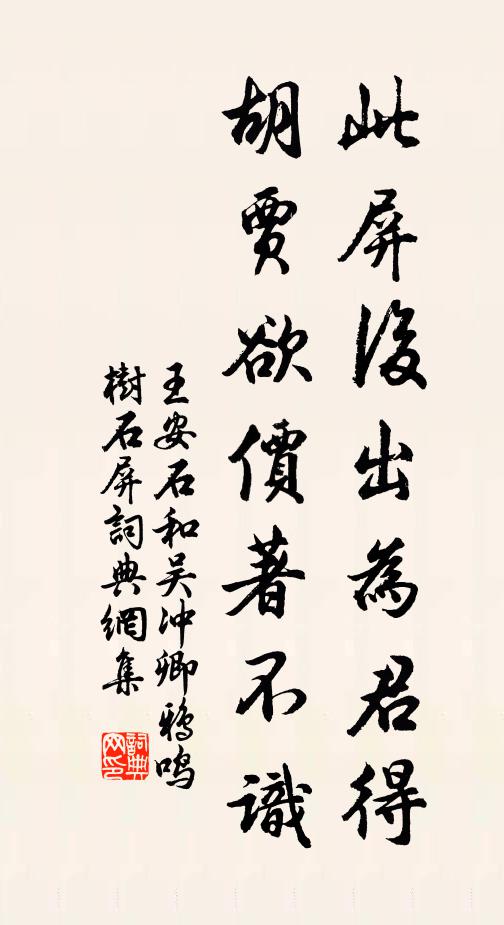 此屏後出為君得
胡賈欲價著不識
王安石和吴冲卿鴉鳴
樹石屏詞典網集
詞典
网印